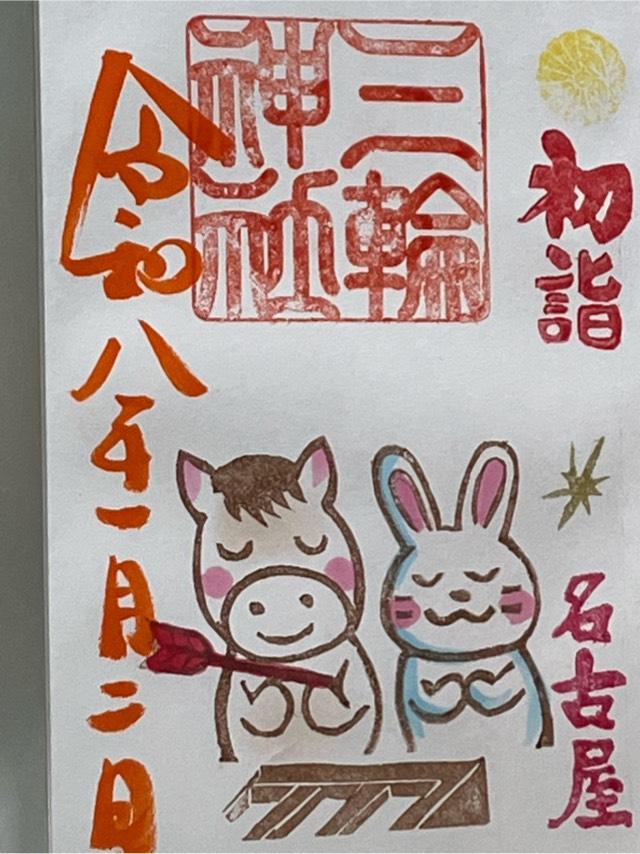 初詣
名古屋
三輪
神社
令和八年一月二日